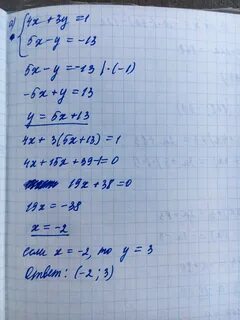 а) { 4x + 3y = 1
5x - y = -13
5x - y = -13 | · (-1)
-5x + y = 13
y = 5x + 13
4x + 3(5x + 13) = 1
4x + 15x + 39 - 1 = 0
19x + 38 = 0
19x = -38
x = -2
если x = -2, то y = 3
Ответ: (-2; 3)